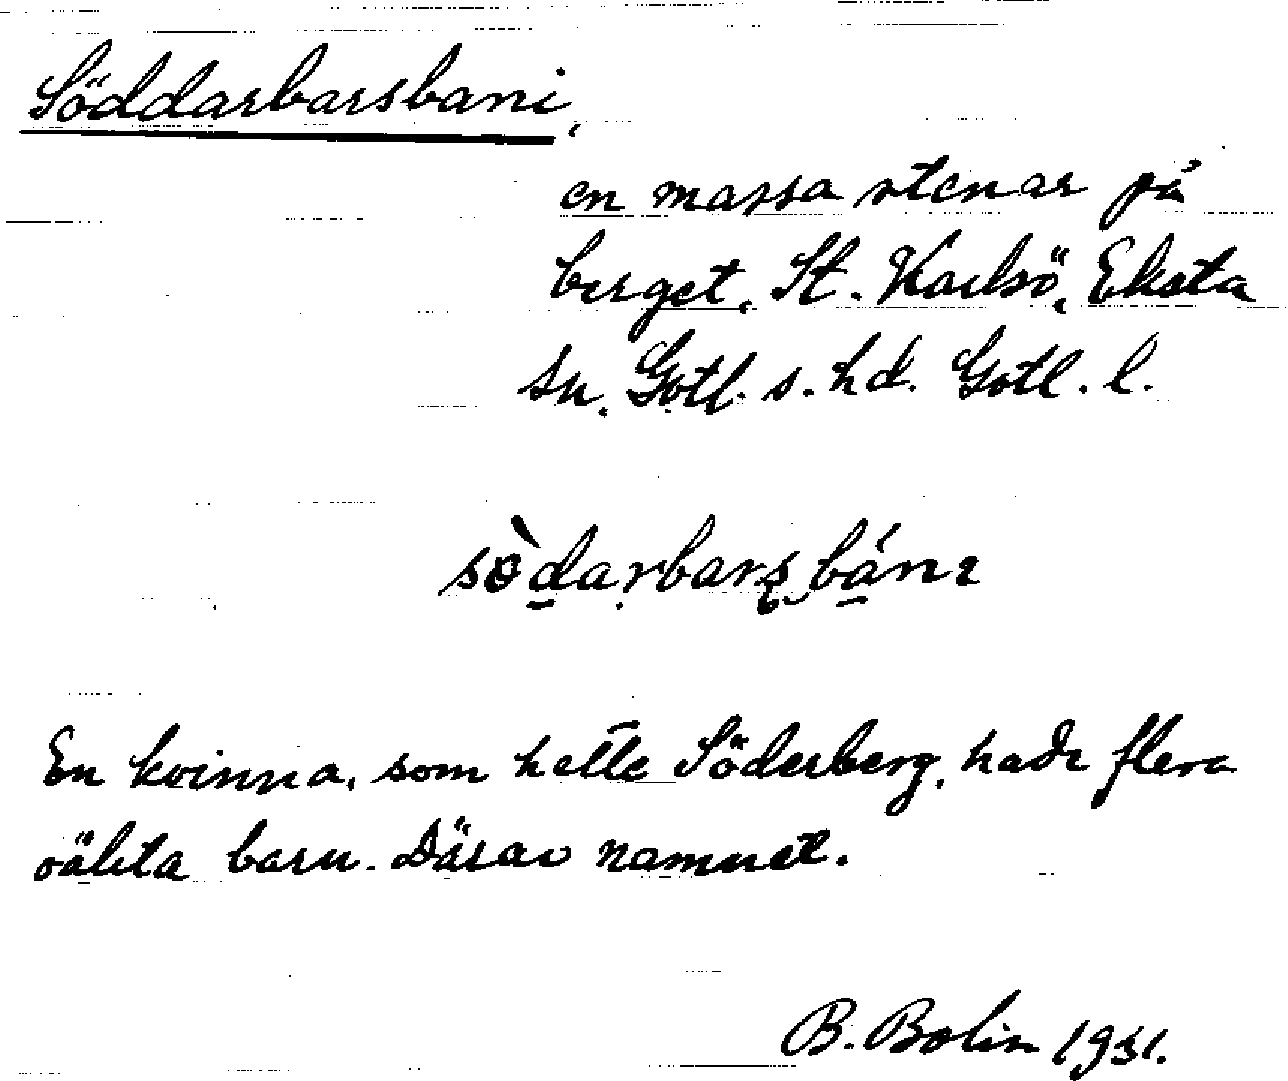 Söddarbarsbani,
en massa stenar på
berget, St. Karlsö, Eksta
sn. Gotl. s. hd. Gotl. l.
sɵ̀darbarsbánɪ
En kvinna, som hette Söderberg, hade flera
oäkta barn. Därav namnet.
B. Bolin 1931.